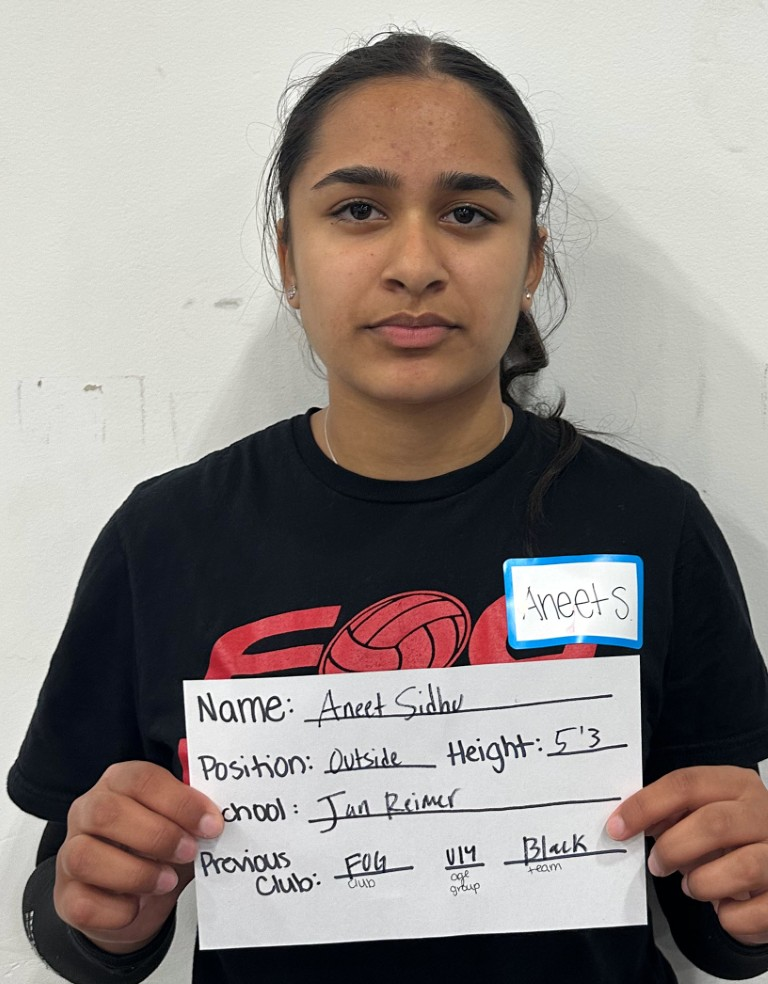 FOG
Aneet S.
Name: Aneet Sidhu
Position: Outside Height: 5'3
School: Jan Reimer
Previous Club: FOG U14 Black
club age group team